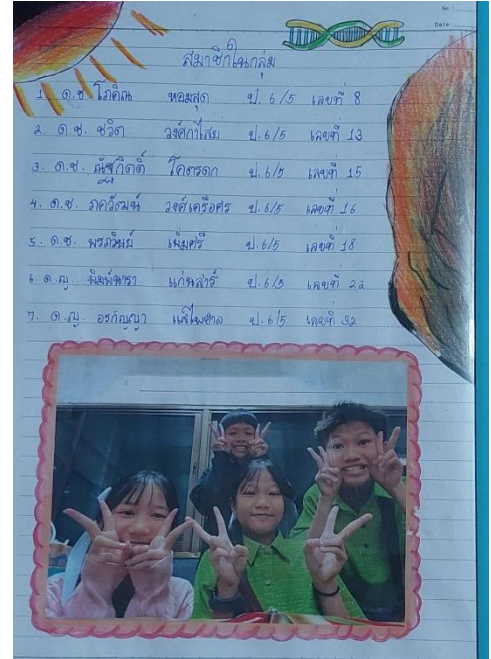 No.
Date
สมาชิกในกลุ่ม
1. ด.ช. โภคิณ หอมสุด ป. 6/5 เลขที่ 8
2. ด.ช. ชวิต วงศ์กาไสย ป. 6/5 เลขที่ 13
3. ด.ช. ณัฐกิตติ์ โคตรดก ป. 6/5 เลขที่ 15
4. ด.ช. ภควัฒน์ วงศ์เครือศร ป. 6/5 เลขที่ 16
5. ด.ช. พรภวิษย์ เพิ่มศรี ป. 6/5 เลขที่ 18
6. ด.ญ. พิมพ์นารา แก่นสาร์ ป. 6/5 เลขที่ 22
7. ด.ญ. อรกัญญา ป. 6/5 เลขที่ 32